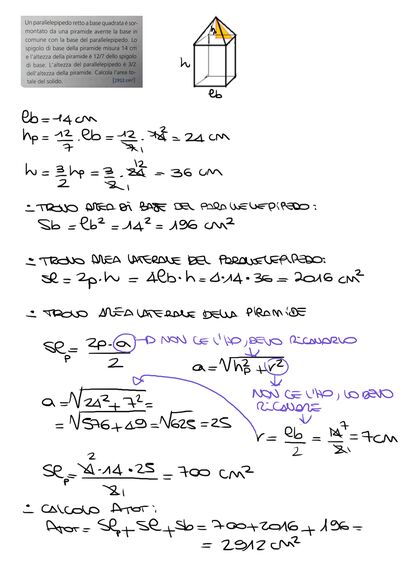 Un parallelepipedo retto a base quadrata è sor-
montato da una piramide avente la base in
comune con la base del parallelepipedo. Lo
spigolo di base della piramide misura 14 cm
e l'altezza della piramide è 12/7 dello spigolo
di base. L'altezza del parallelepipedo è 3/2
dell'altezza della piramide. Calcola l'area to-
tale del solido. [2912 cm²]
h
h
lb
lb = 14 cm
hp = 12/7 · lb = 12/7 1 · 14 2 = 24 cm
h = 3/2 hp = 3/2 1 · 24 12 = 36 cm
÷ TROVO AREA DI BASE DEL PARALLELEPIPEDO:
Sb = lb² = 14² = 196 cm²
÷ TROVO AREA LATERALE DEL PARALLELEPIPEDO:
Sl = 2p · h = 4lb · h = 4·14·36 = 2016 cm²
÷ TROVO AREA LATERALE DELLA PIRAMIDE
Slp = 2p · a / 2 → NON CE L'HO, DEVO RICAVARLO
a = √hp² + r²
NON CE L'HO, LO DEVO
RICAVARE
a = √24² + 7² =
= √576 + 49 = √625 = 25
r = lb/2 = 14 7/2 1 = 7 cm
Slp = 4 2 · 14 · 25 / 2 1 = 700 cm²
÷ CALCOLO ATOT:
ATOT = Slp + Sl + Sb = 700 + 2016 + 196 =
= 2912 cm²